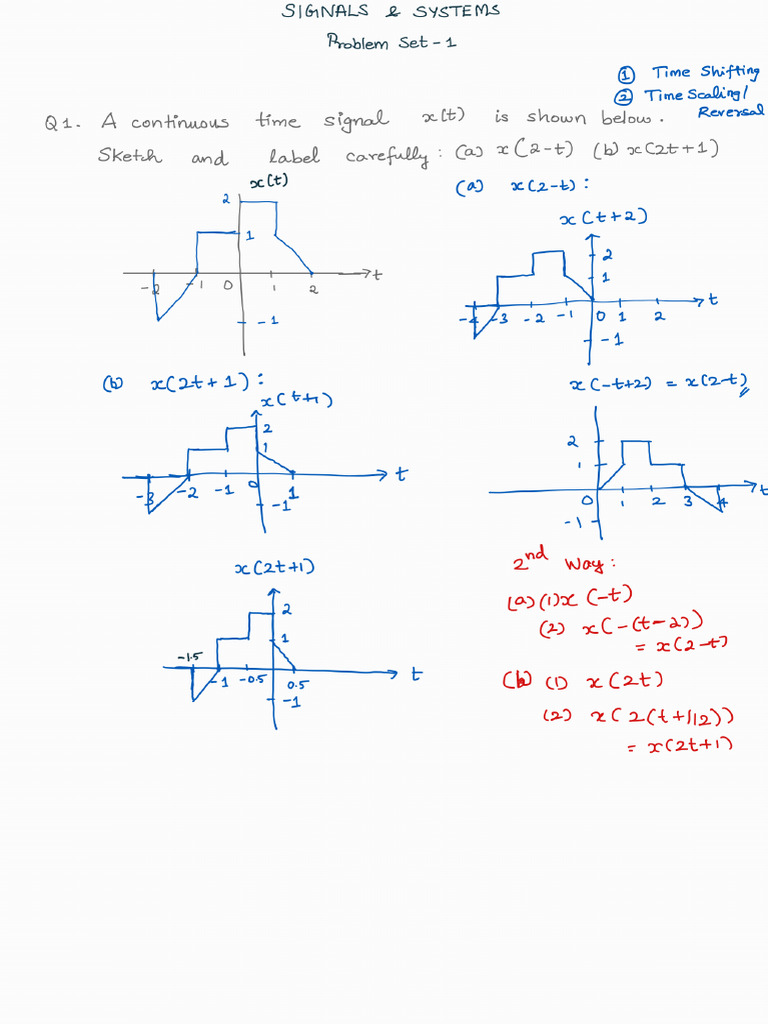 SIGNALS & SYSTEMS
Problem Set - 1
① Time Shifting
② Time Scaling/
Reversal
Q1. A continuous time signal x(t) is shown below.
Sketch and label carefully: (a) x(2-t) (b) x(2t+1)
x(t)
2
1
-2 -1 0 1 2 t
-1
(a) x(2-t):
x(t+2)
2
1
-4 -3 -2 -1 0 1 2 t
-1
x(-t+2) = x(2-t)
2
1
0 1 2 3 4 t
-1
(b) x(2t+1):
x(t+1)
2
1
-3 -2 -1 0 1 t
-1
x(2t+1)
2
1
-1.5 -1 -0.5 0.5 t
-1
2nd Way:
(a) (1) x(-t)
(2) x(-(t-2))
= x(2-t)
(b) (1) x(2t)
(2) x(2(t+1/2))
= x(2t+1)